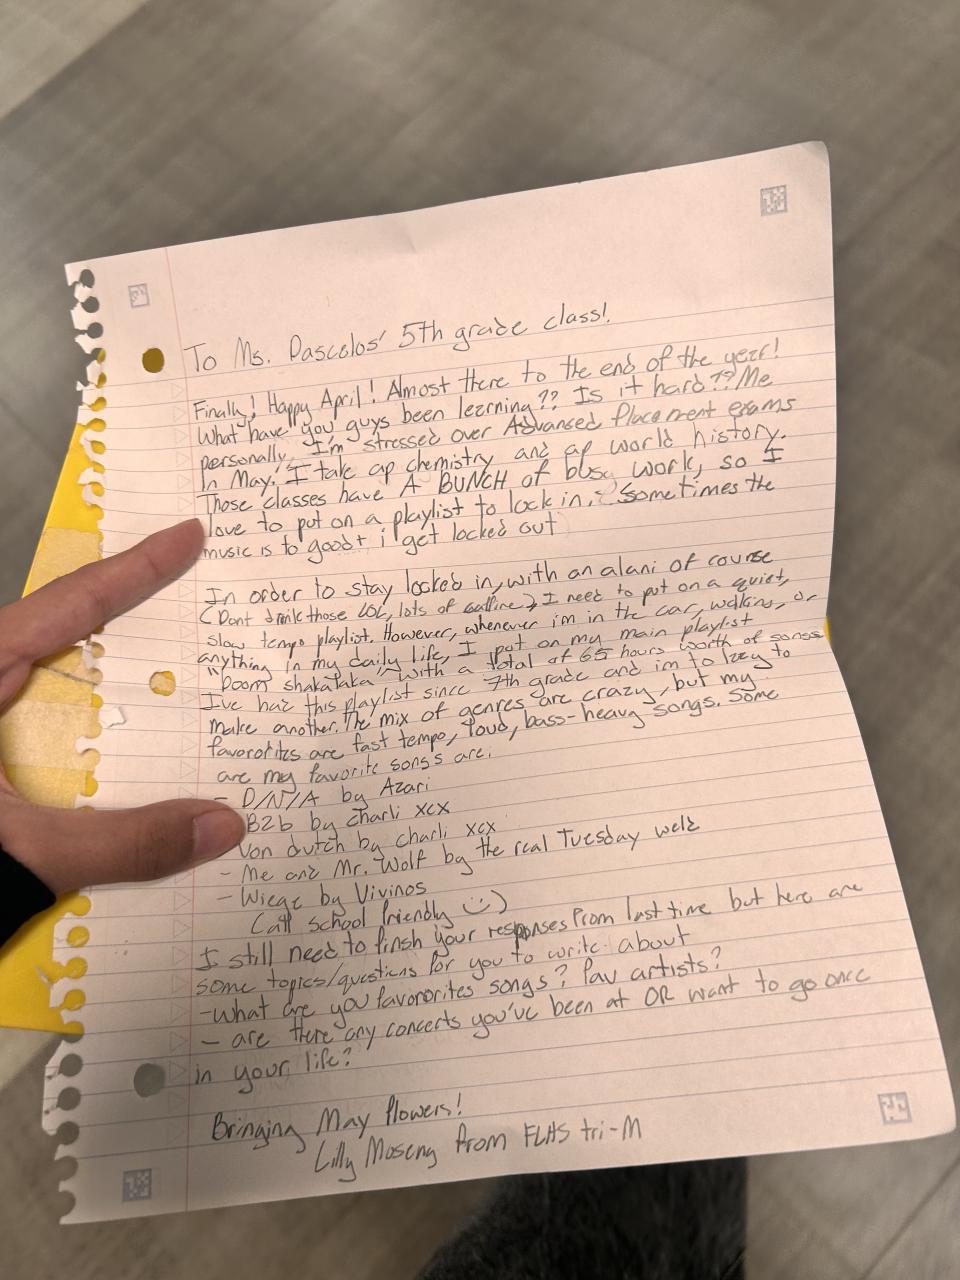 To Ms. Dascolos' 5th grade class!
Finally! Happy April! Almost there to the end of the year!
What have you guys been learning?? Is it hard?? Me
personally, I'm stressed over Advanced Placement exams
In May. I take ap chemistry and ap world history.
Those classes have A BUNCH of busy work, so I
love to put on a playlist to lock in. Sometimes the
music is to good + i get locked out
In order to stay locked in, with an alani of course
(Dont drink those LOL, lots of caffine) I need to put on a quiet,
slow tempo playlist. However, whenever im in the car, walking, or
anything in my daily life, I put on my main playlist
"Doom shakalaka" with a total of 65 hours worth of songs
I've had this playlist since 7th grade and im to lazy to
make another. The mix of genres are crazy, but my
favororites are fast tempo, loud, bass-heavy songs. Some
are my favorite songs are:
- D/N/A by Azari
B2b by charli xcx
Von dutch by charli xcx
- Me and Mr. Wolf by the real Tuesday weld
- Wiege by Vivinos
(all school friendly :))
I still need to finsh your responses from last time but here are
some topics/questions for you to write about
- What are you favororites songs? Fav artists?
- are there any concerts you've been at OR want to go once
in your life?
Bringing May flowers!
Lilly Moseng from FLHS tri-M